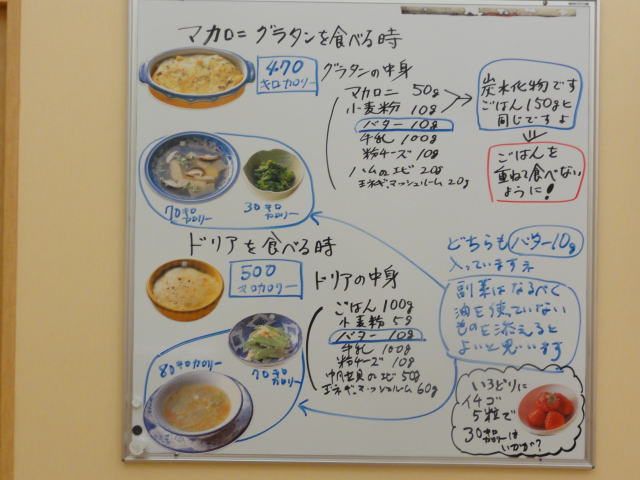 マカロニグラタンを食べる時
470
キロカロリー
グラタンの中身
マカロニ 50g
小麦粉 10g
バター 10g
牛乳 100g
粉チーズ 10g
ハムorエビ 20g
玉ネギ、マッシュルーム 20g
炭水化物です
ごはん150gと
同じですよ
ごはんを
重ねて食べない
ように!
70キロカロリー
30キロカロリー
ドリアを食べる時
500
キロカロリー
ドリアの中身
ごはん 100g
小麦粉 5g
バター 10g
牛乳 100g
粉チーズ 10g
エビ 50g
玉ネギ、マッシュルーム 60g
80キロカロリー
70キロカロリー
どちらもバター10g
入っていますね
副菜はなるべく
油を使っていない
ものを添えると
よいと思います
いろどりに
イチゴ
5粒で
30キロカロリーは
いかが?